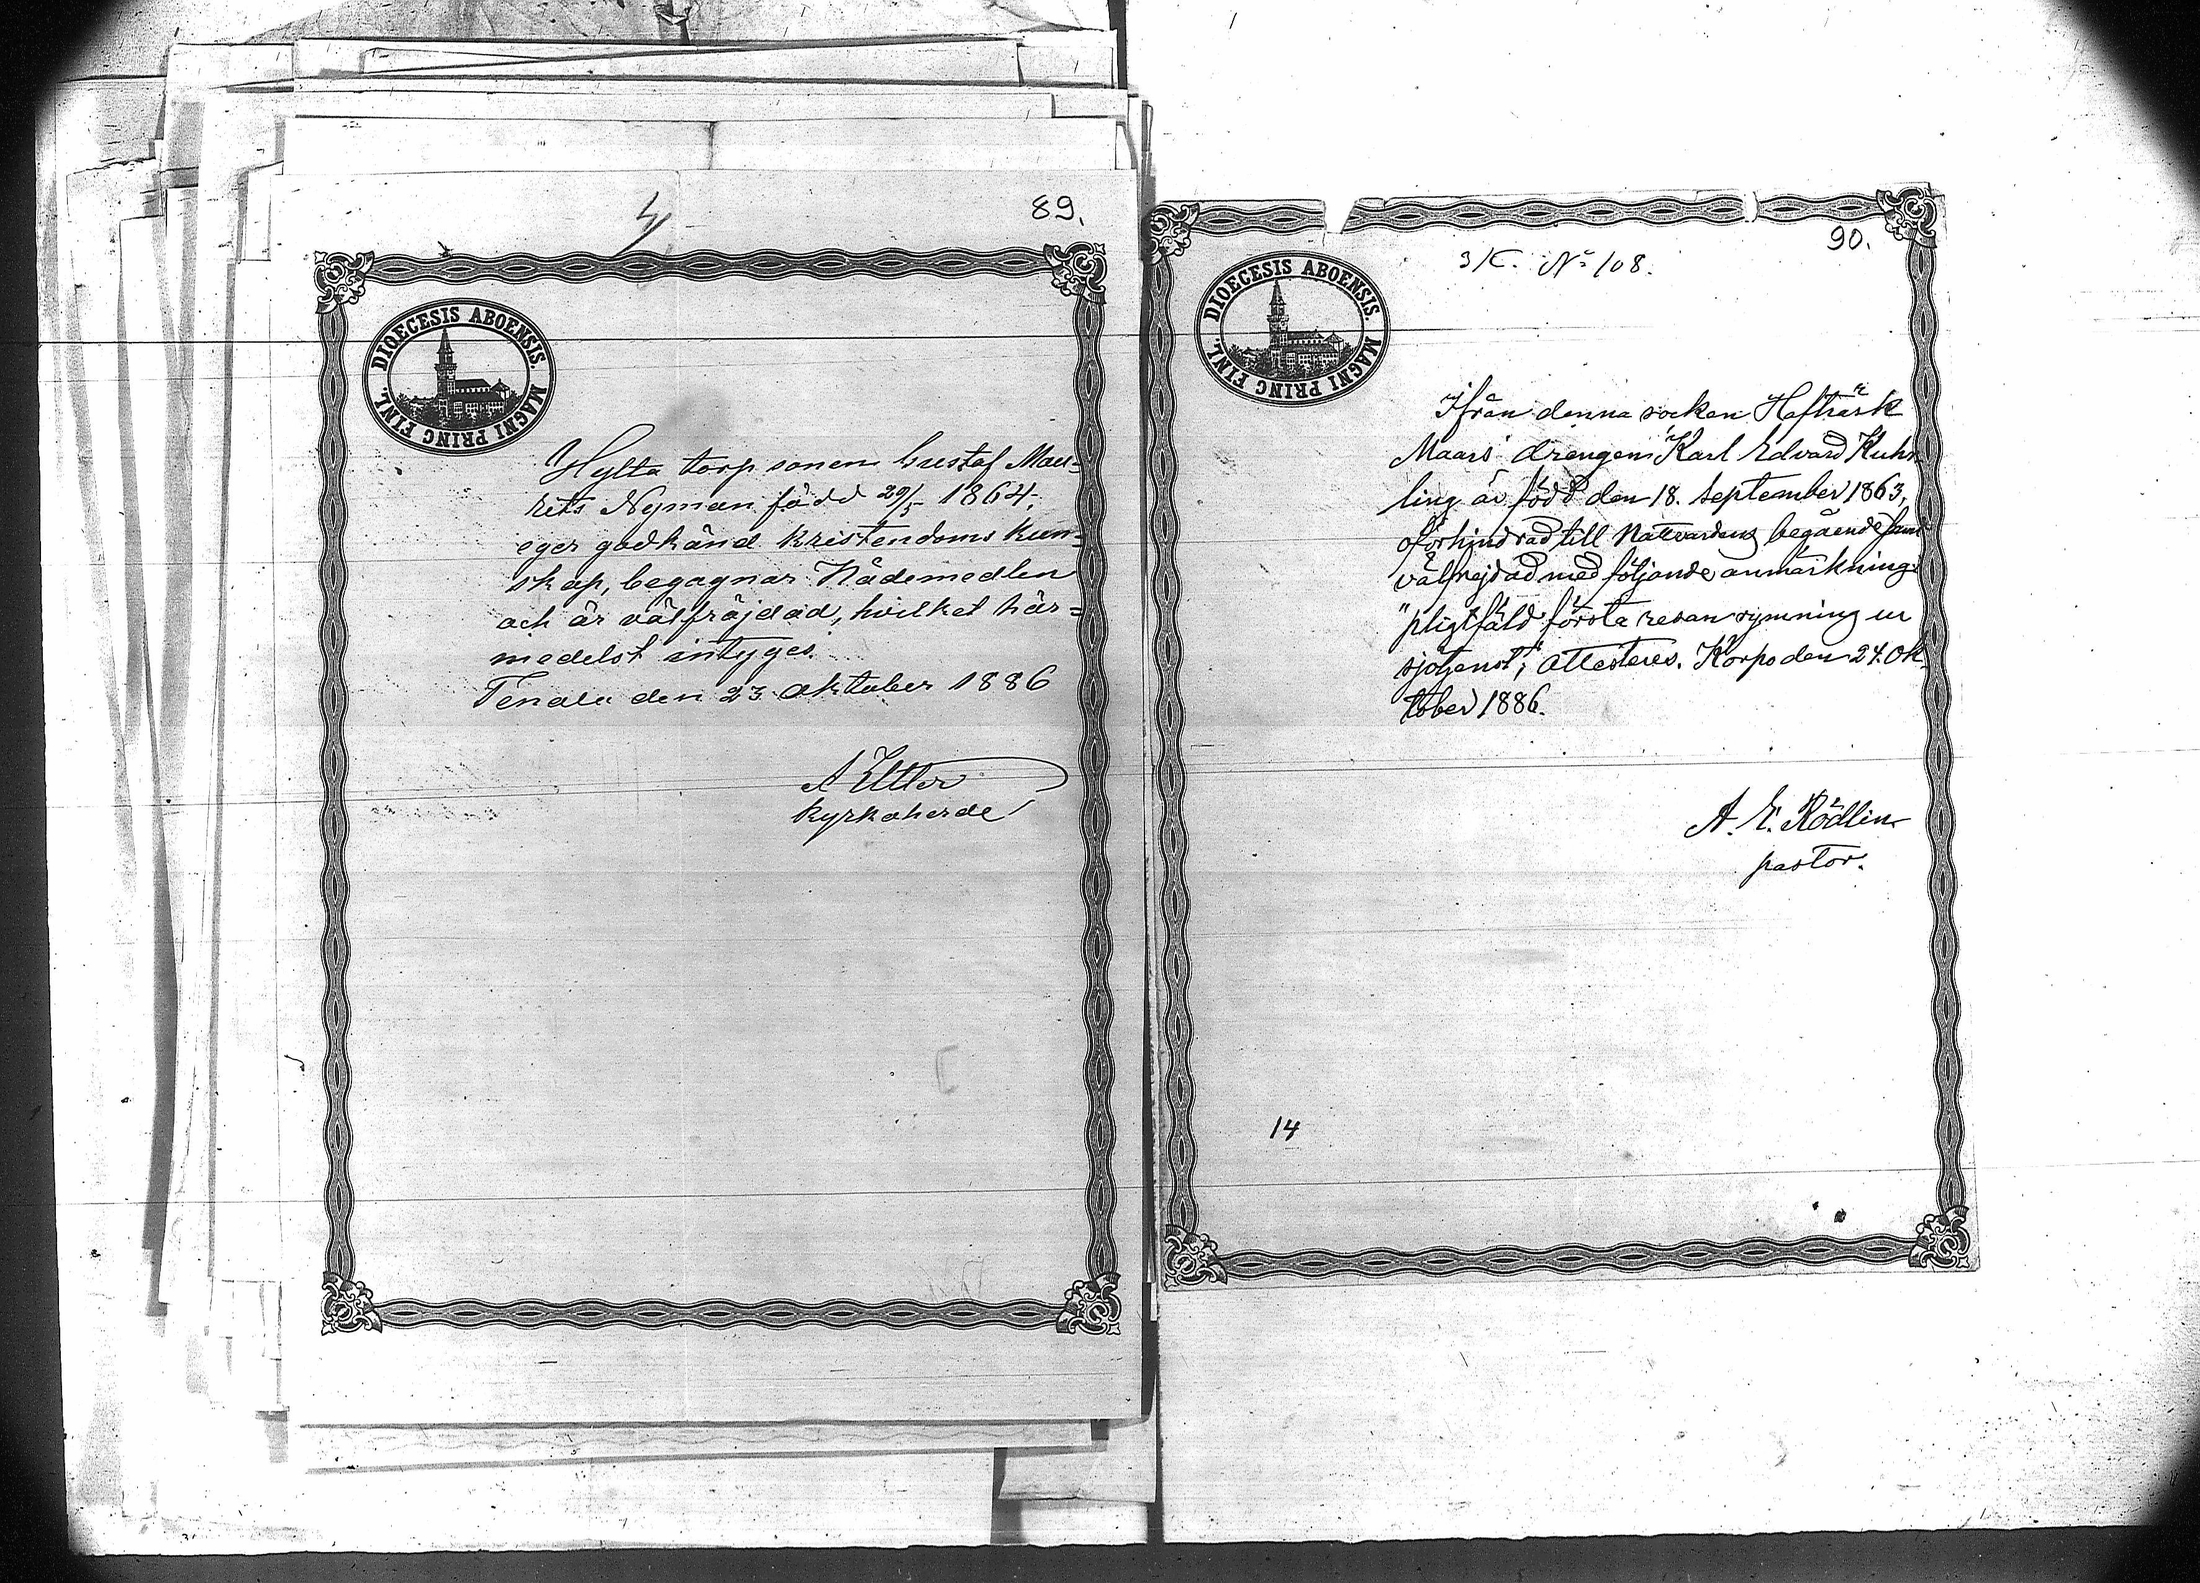 89.
DIOECESIS ABOENSIS. MAGNI PRINC FINL.
Hylta torp sonen Gustaf Mau=
rits Nyman född 29/5 1864,
eger godkänd kristendoms kun=
skap, begagnar Nådemedlen
och är välfräjdad, hvilket här=
medelst intyges.
Tenala den 23 oktober 1886
kyrkoherde
90.
3/C. No 108.
DIOECESIS ABOENSIS. MAGNI PRINC FINL.
Ifrån denna socken Hafträsk
Maars drengen Karl Edvard Kuhl
ling är född den 18. September 1863,
oförhindrad till Nattvardens begående samt
välfrejdad med följande anmärkning:
"pligtfäld första resan rymning ur
sjötjenst"; attesteres. Korpo den 24. Ok
tober 1886.
A. E. Rödlin
pastor.
14